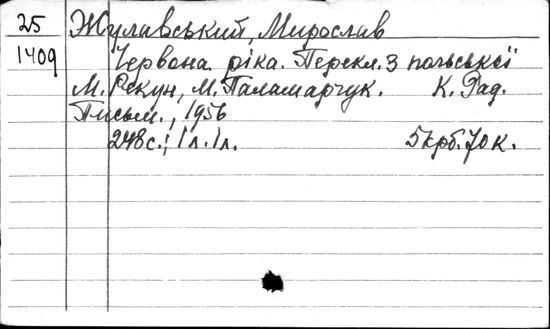 25 Жулавський, Мирослав
1409 Червона ріка. Перекл. з польської
М. Рекун, М. Паламарчук. К. Рад.
Письм., 1956
248 с.; 1 л. іл.
5 крб. 70 к.